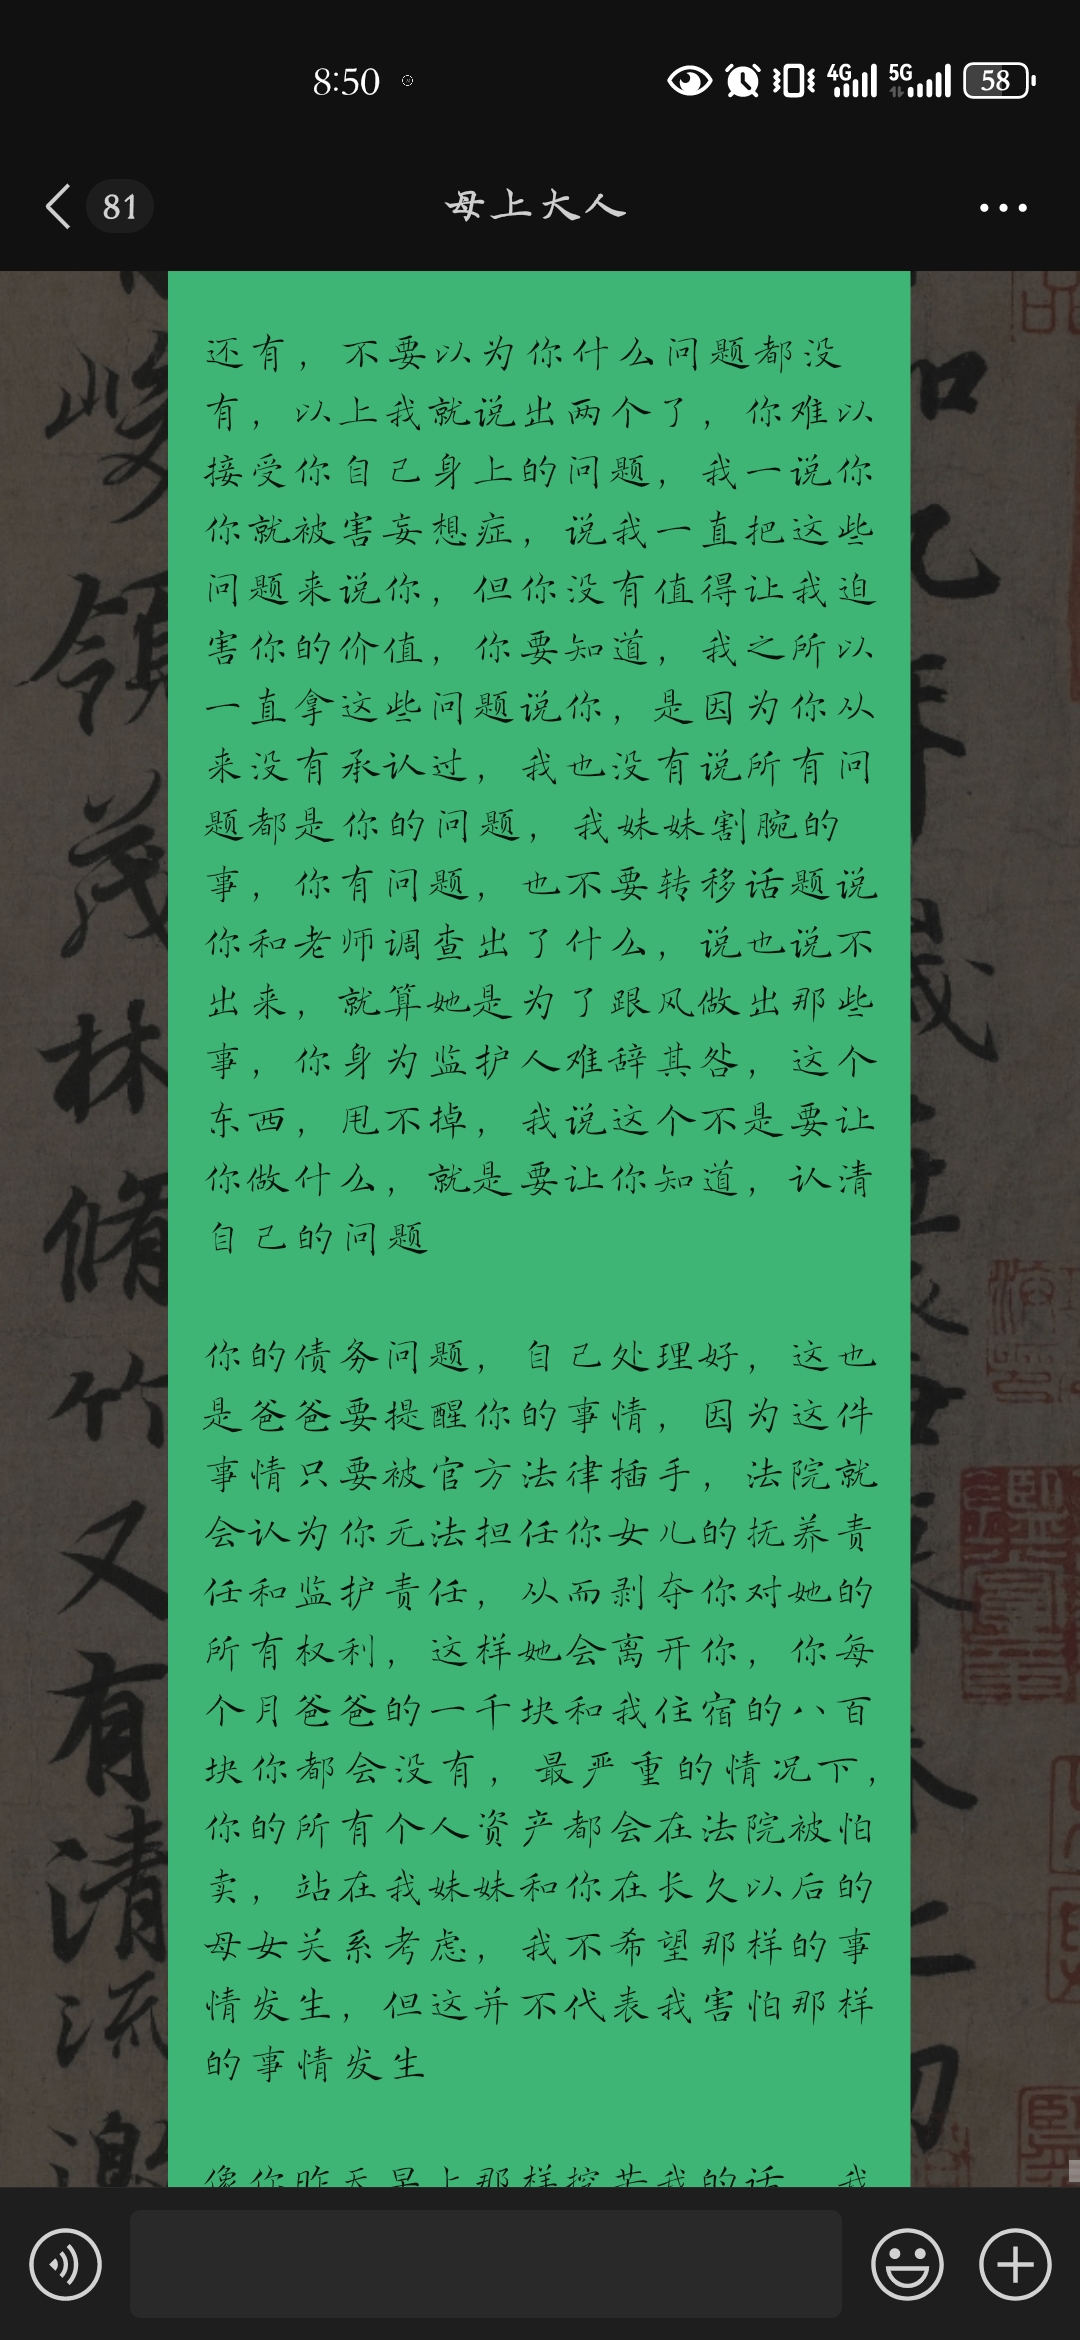 8:50
4G
5G
58
81
母上大人
还有，不要以为你什么问题都没
有，以上我就说出两个了，你难以
接受你自己身上的问题，我一说你
你就被害妄想症，说我一直把这些
问题来说你，但你没有值得让我迫
害你的价值，你要知道，我之所以
一直拿这些问题说你，是因为你从
来没有承认过，我也没有说所有问
题都是你的问题，我妹妹割腕的
事，你有问题，也不要转移话题说
你和老师调查出了什么，说也说不
出来，就算她是为了跟风做出那些
事，你身为监护人难辞其咎，这个
东西，甩不掉，我说这个不是要让
你做什么，就是要让你知道，认清
自己的问题
你的债务问题，自己处理好，这也
是爸爸要提醒你的事情，因为这件
事情只要被官方法律插手，法院就
会认为你无法担任你女儿的抚养责
任和监护责任，从而剥夺你对她的
所有权利，这样她会离开你，你每
个月爸爸的一千块和我住宿的八百
块你都会没有，最严重的情况下，
你的所有个人资产都会在法院被怕
卖，站在我妹妹和你在长久以后的
母女关系考虑，我不希望那样的事
情发生，但这并不代表我害怕那样
的事情发生
像你昨天早上那样挖苦我的话，我
峻
领
茂
林
脩
竹
又
有
清
流
激